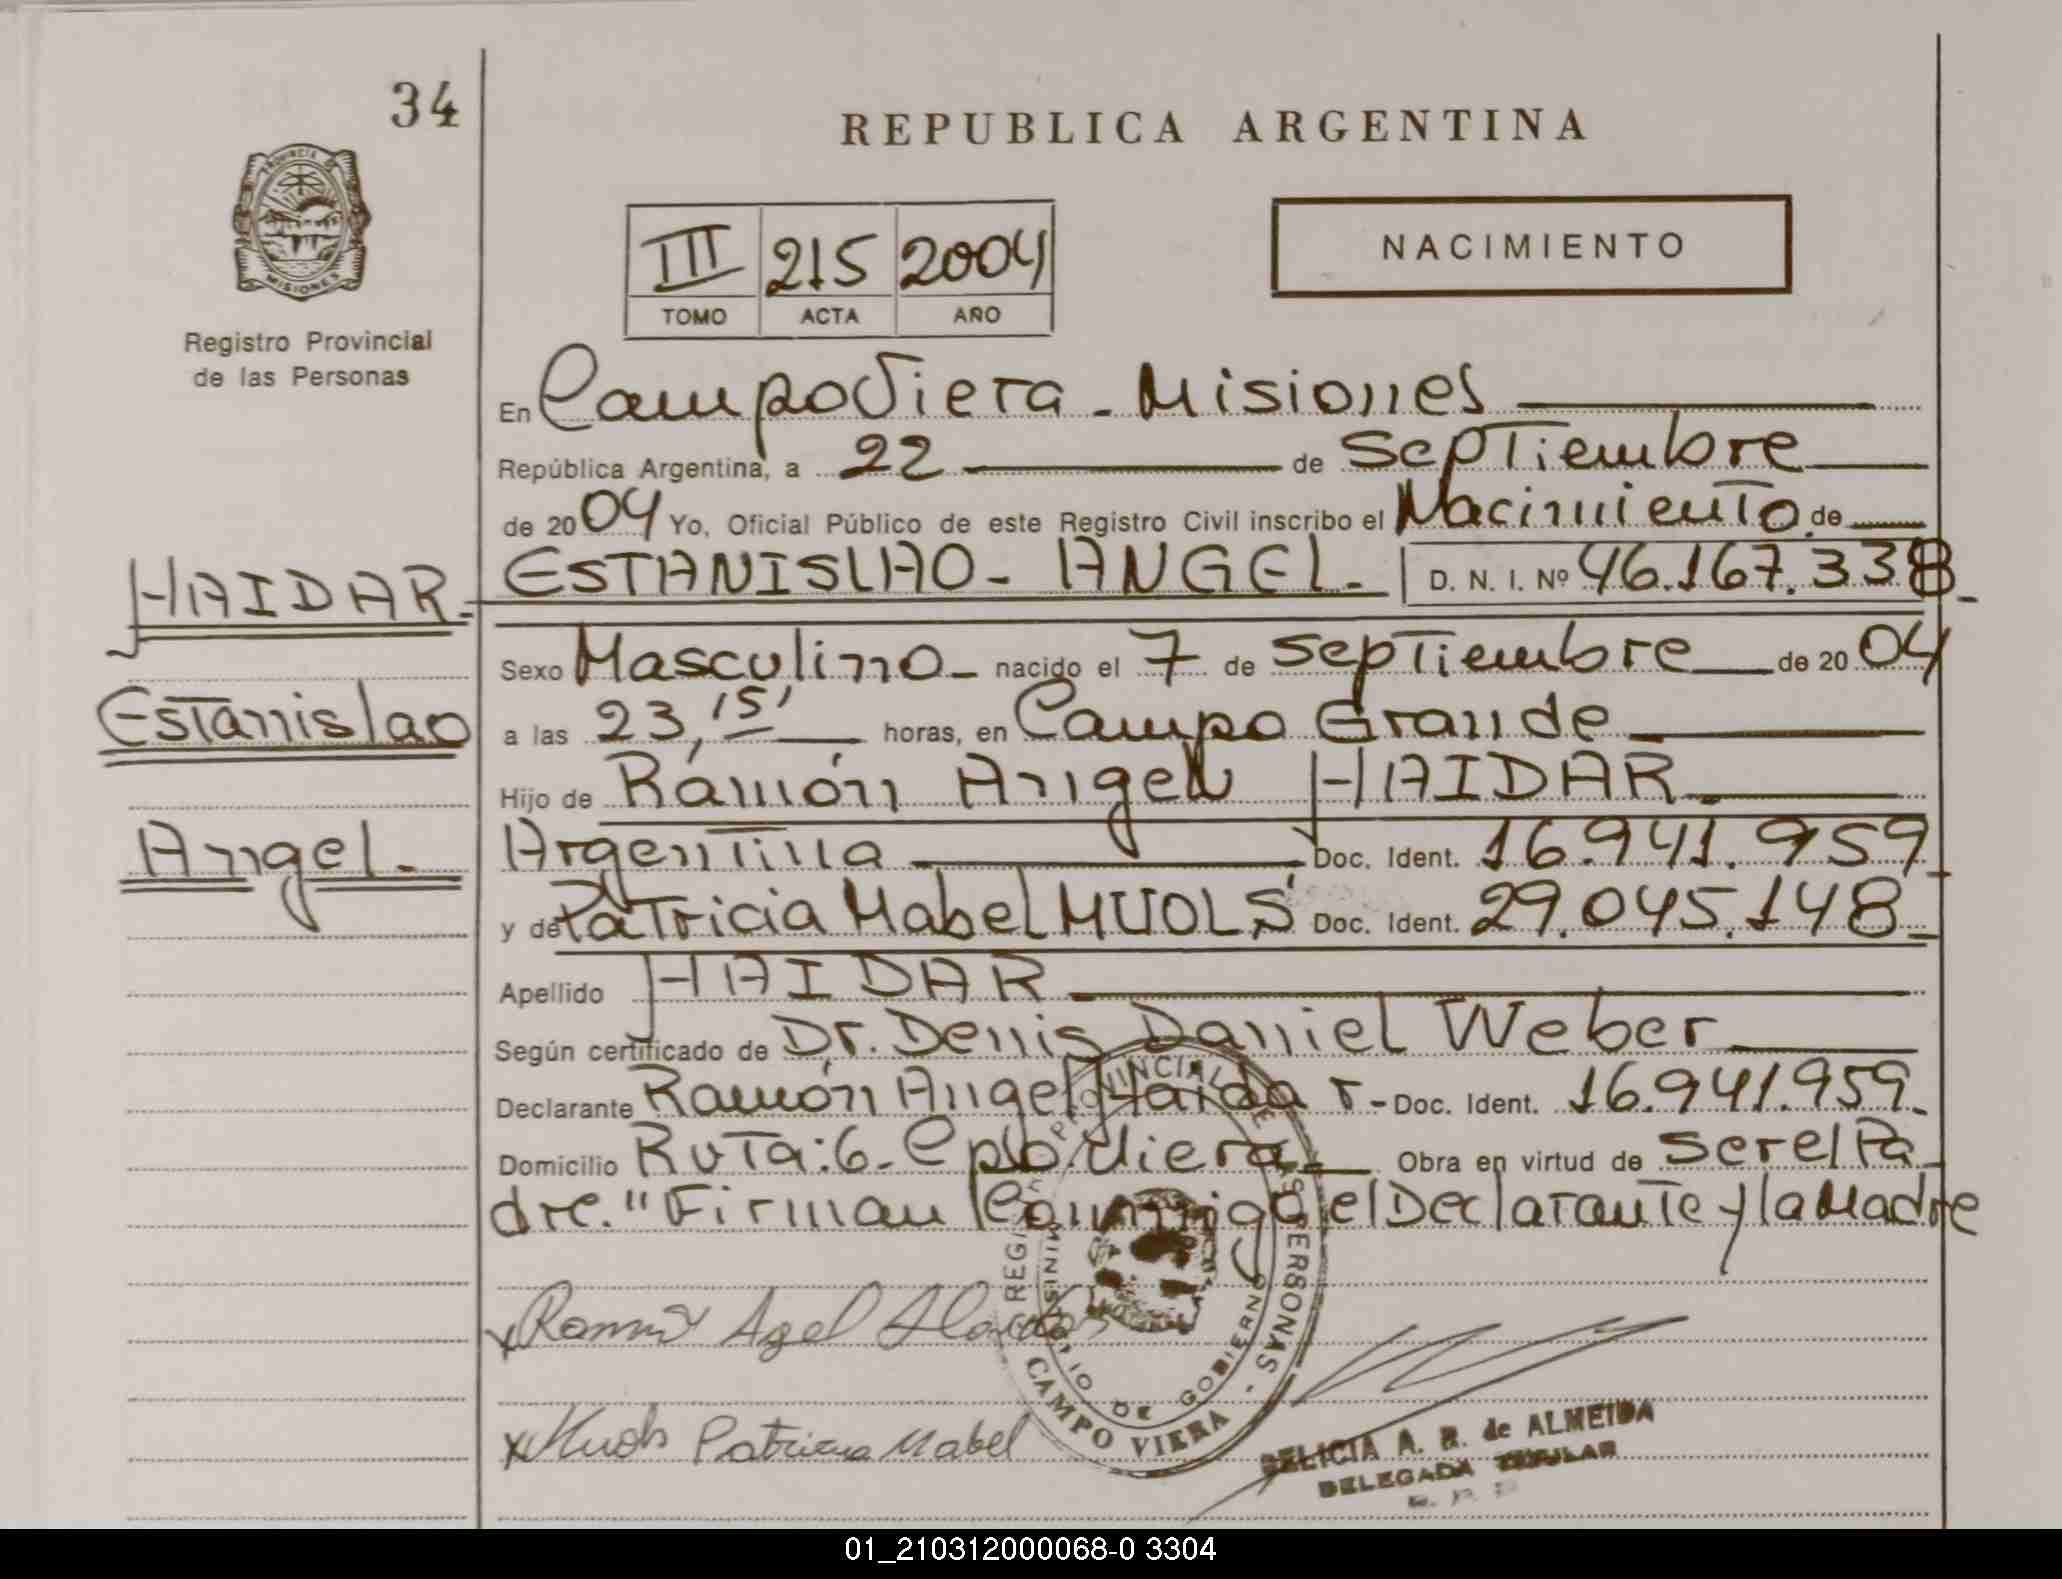 34
REPUBLICA ARGENTINA
PROVINCIA DE
MISIONES
Registro Provincial
de las Personas
III 215 2004
TOMO ACTA AÑO
NACIMIENTO
En Campo Viera - Misiones
República Argentina, a 22 de Septiembre
de 2004 Yo, Oficial Público de este Registro Civil inscribo el Nacimiento de
HAIDAR - ESTANISLAO - ANGEL - D. N. I. Nº 46.167.338 -
Sexo Masculino - nacido el 7 de Septiembre de 2004
Estanislao
a las 23,15' horas, en Campo Grande
Hijo de Ramón Angel HAIDAR
Angel -
Argentina Doc. Ident. 16.941.959 -
y de Patricia Mabel MUOLS Doc. Ident. 29.045.148 -
Apellido HAIDAR
Según certificado de Dr. Denis Daniel Weber
Declarante Ramón Angel Haidar - Doc. Ident. 16.941.959 -
Domicilio Ruta: 6 - Cpo. Viera - Obra en virtud de ser el Pa-
dre. "Firman Conmigo el Declarante y la Madre
x Ramón Agel
x Patricia Mabel
REGISTRO PROVINCIAL DE LAS PERSONAS -
MINISTERIO DE GOBIERNO
CAMPO VIERA
DELICIA A. R. de ALMEIDA
DELEGADA TITULAR
01_210312000068-0 3304